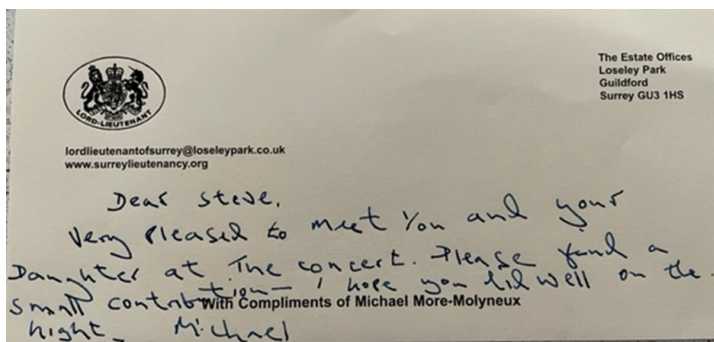 The Estate Offices
Loseley Park
Guildford
Surrey GU3 1HS
LORD-LIEUTENANT
lordlieutenantofsurrey@loseleypark.co.uk
www.surreylieutenancy.org
Dear Steve,
Very pleased to meet you and your
Daughter at The concert. Please find a
small contribution - I hope you did well on the
With Compliments of Michael More-Molyneux
night - Michael